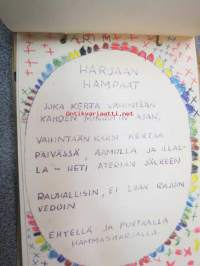 HARJAAN
HAMPAAT
JOKA KERTA VÄHINTÄÄN
KAHDEN MINUUTIN AJAN,
VÄHINTÄÄN KAKSI KERTAA
PÄIVÄSSÄ, AAMULLA JA ILLAL-
LA – HETI ATERIAN JÄLKEEN
RAUHALLISIN, EI LIIAN RAJUIN
VEDOIN
EHYELLÄ JA PUHTAALLA
HAMMASHARJALLA.